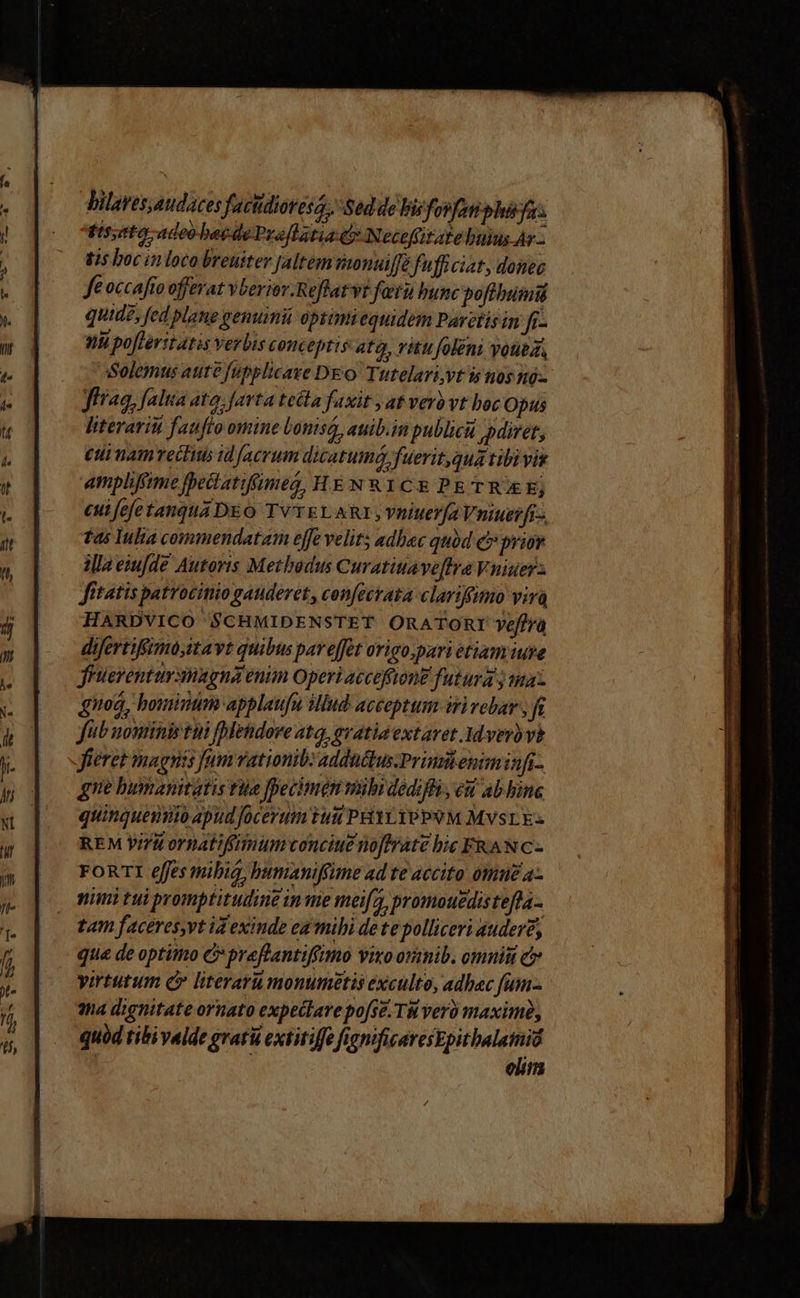 hilares,audaces facũdioresq́;. Sed de his forſan plus ſa-
tis;atq;adeò hæc de Præſtãtia & Neceſſitate huius Ar-
tis hoc in loco breuiter ſaltem monuiſſe ſufficiat, donec
ſe occaſio offerat vberior.Reſtat vt fœtũ hunc poſthumũ
quidẽ, ſed planè genuinũ optimi equidem Parẽtis in ſi-
nũ poſteritatis verbis conceptis atq, ritu ſolẽni voueã,
Solemus autẽ ſupplicare DEO Tutelari,vt is nos nõ-
ſtraq, ſalua atq, ſarta tecta faxit , at verò vt hoc Opus
literariũ fauſto omine bonisq́, auib.in publicũ ꝓdiret,
cui nam rectius id ſacrum dicatumq́, fuerit,quã tibi vir
ampliſſime ſpectatiſſimeq́, HENRICE PETRÆE,
cui ſeſe tanquã DEO TVTELARI , vniuerſa Vniuerſi-
tas Iulia commendatam eſſe velit; adhæc quòd & prior
illa eiuſdẽ Autoris Methodus Curatiua veſtra Vniuer-
ſitatis patrocinio gauderet, conſecrata clariſſimo viro
HARDVICO SCHMIDENSTET ORATORI veſtro
diſertiſſimo,ita vt quibus par eſſet origo,pari etiam iure
fruerentur:magnã enim Operi acceſſionẽ futurã , ma-
gnoq́, hominum applauſu illud acceptum iri rebar , ſi
ſub nominis tui ſplendore atq, gratia extaret.Id verò vt
fieret magnis ſum rationib. adductus.Primũ enim inſi-
gne humanitatis tuæ ſpecimen mihi dediſti , cũ ab hinc
quinquennio apud ſocerum tuũ PHILIPPVM MVSLE-
REM virũ ornatiſſimum conciuẽ noſtratẽ hic FRANC-
FORTI eſſes mihiq́, humaniſſime ad te accito omnẽ a-
nimi tui promptitudinẽ in me meiſq́, promouẽdis teſta-
tam faceres,vt iã exinde ea mihi de te polliceri auderẽ,
quæ de optimo & præſtantiſſimo viro omnib. omniũ &
virtutum & literarũ monumẽtis exculto, adhæc ſum-
ma dignitate ornato expectare poſsẽ.Tũ verò maximè,
quòd tibi valde gratũ extitiſſe ſignificares Epithalamiõ
olim